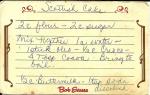 Scottish Cake
2c flour - 2c sugar
Mix - together 1c water -
1 stick oleo - ½ c crisco -
4 Tbsp Cocoa - Bring to
boil -
½c Buttermilk - 1 tsp soda
dissolve
Bob Evans